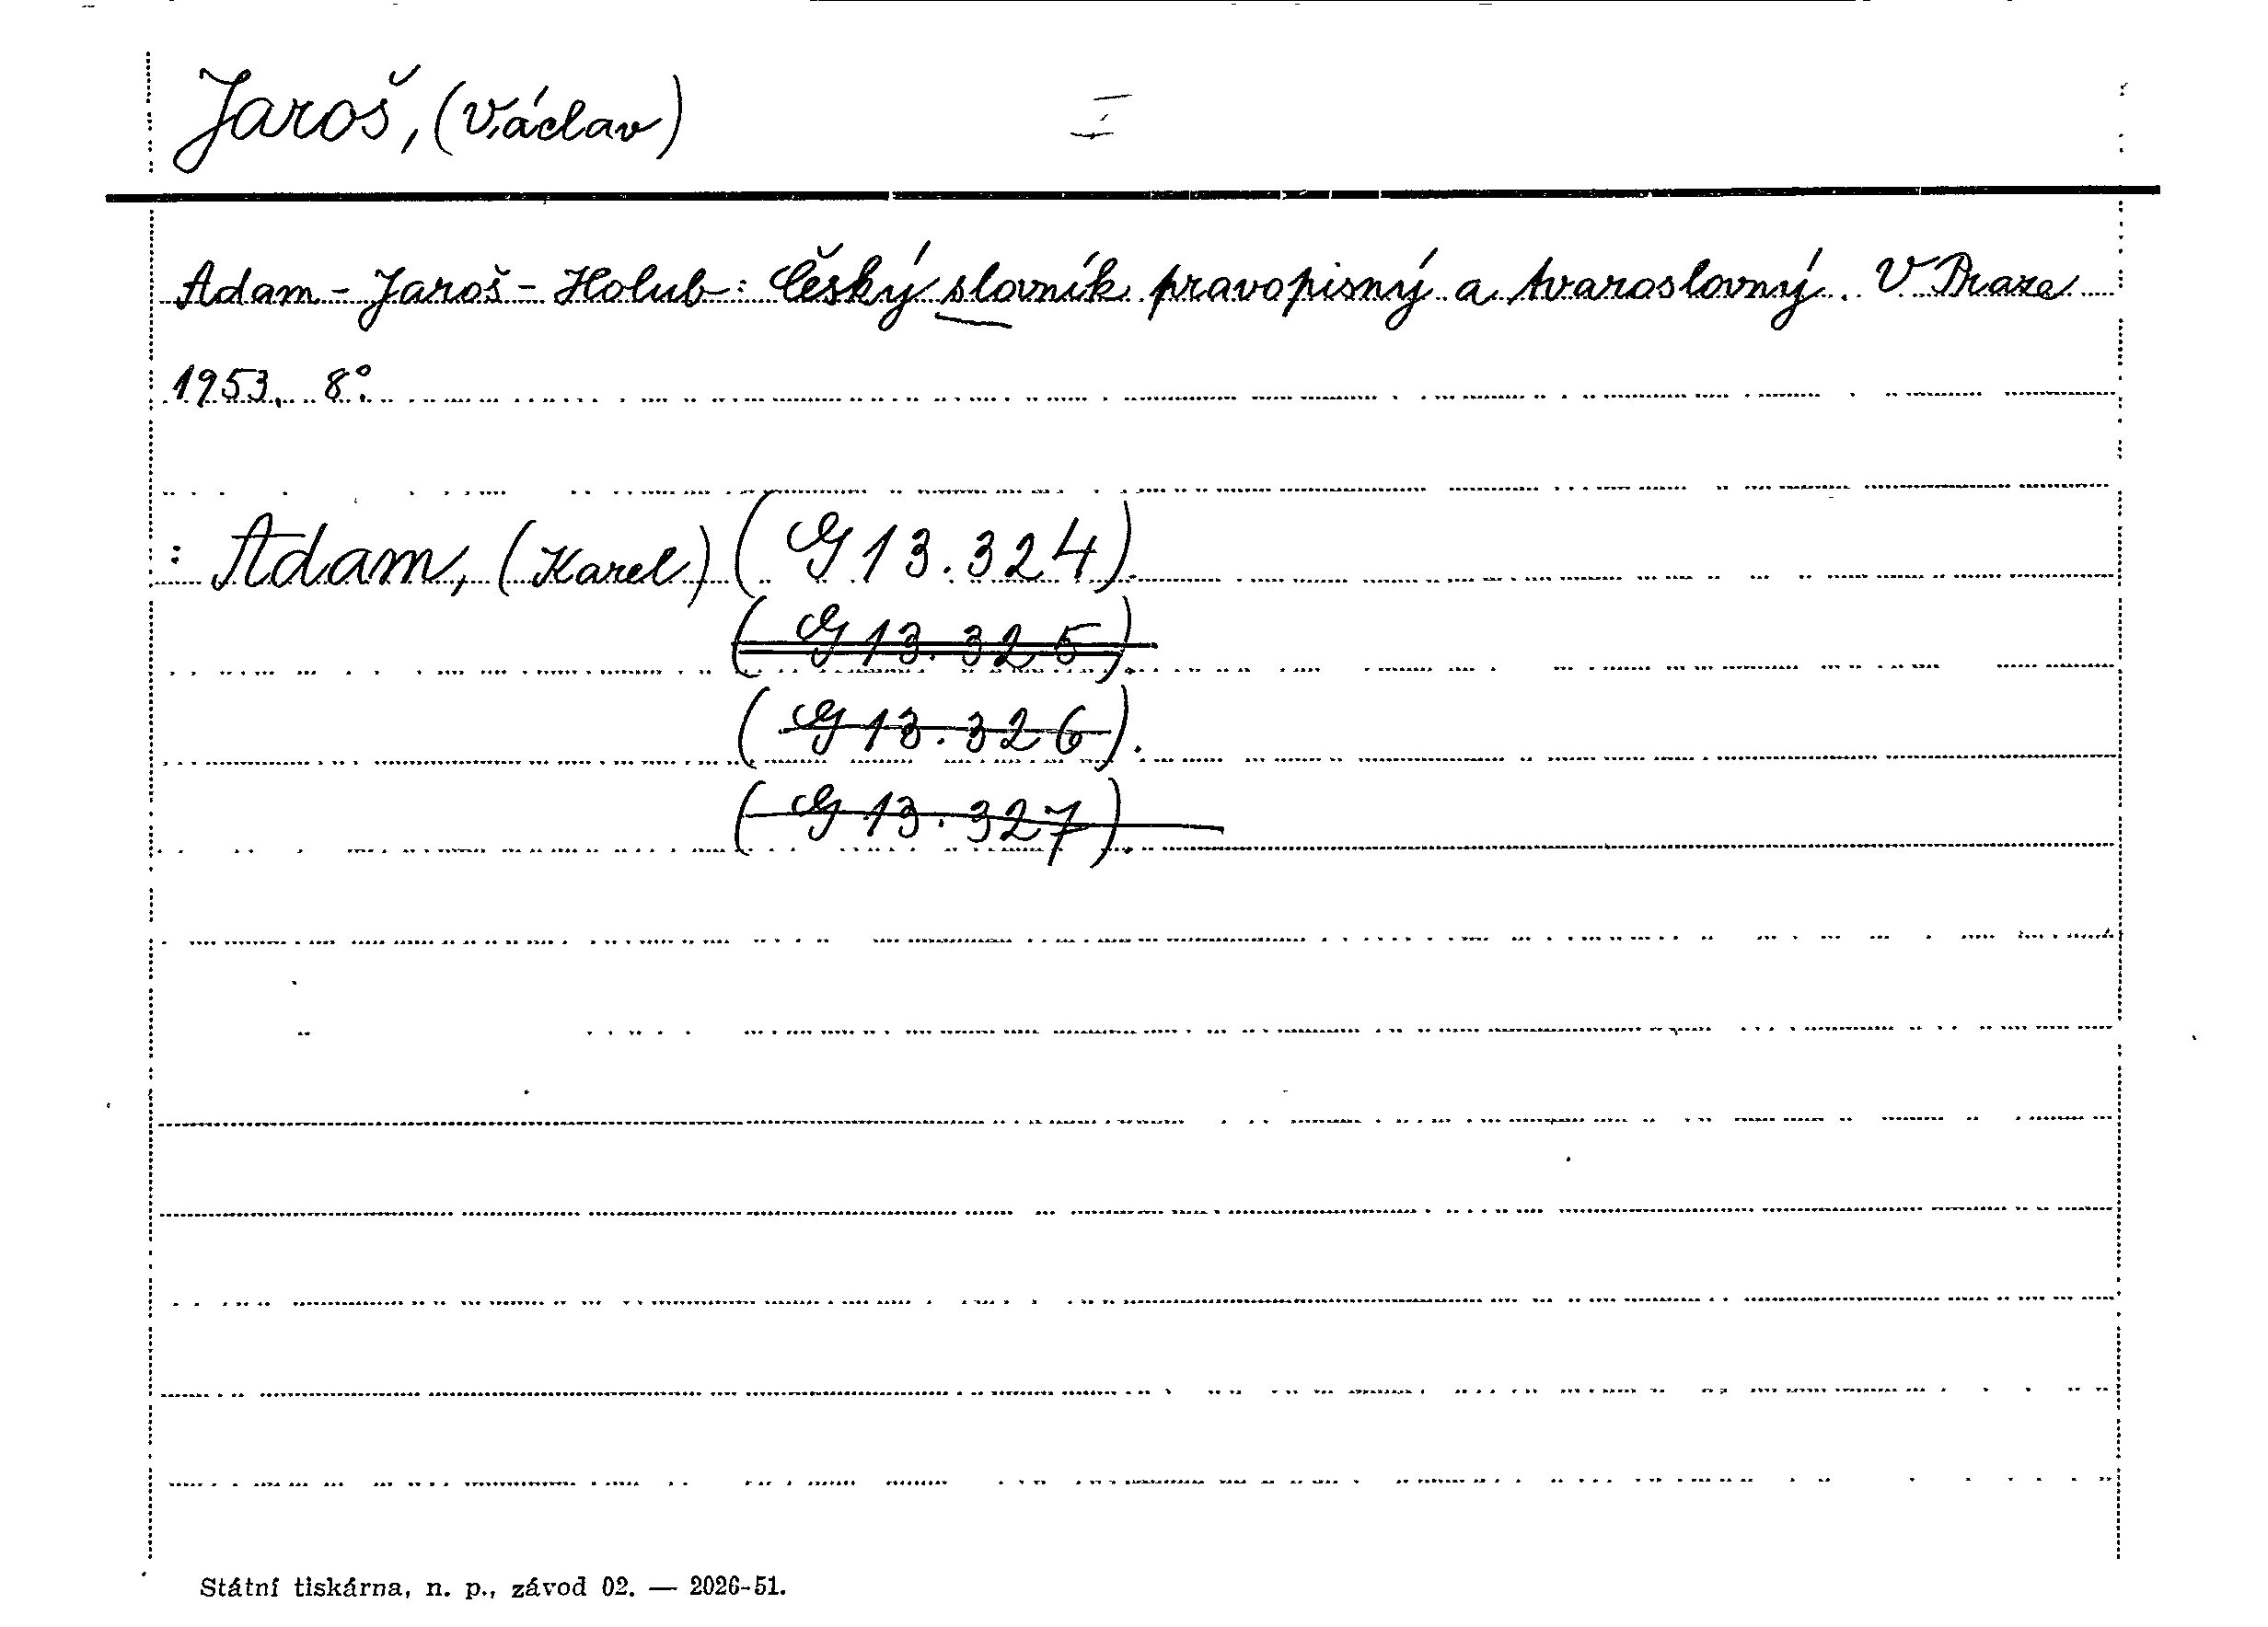 Jaroš, (Václav)
Adam - Jaroš - Holub: Český slovník pravopisný a tvaroslovný. V Praze
1953. 8°.
: Adam, (Karel) (G 13.324).
(G 13.325).
(G 13.326).
(G 13.327).
Státní tiskárna, n. p., závod 02. — 2026-51.